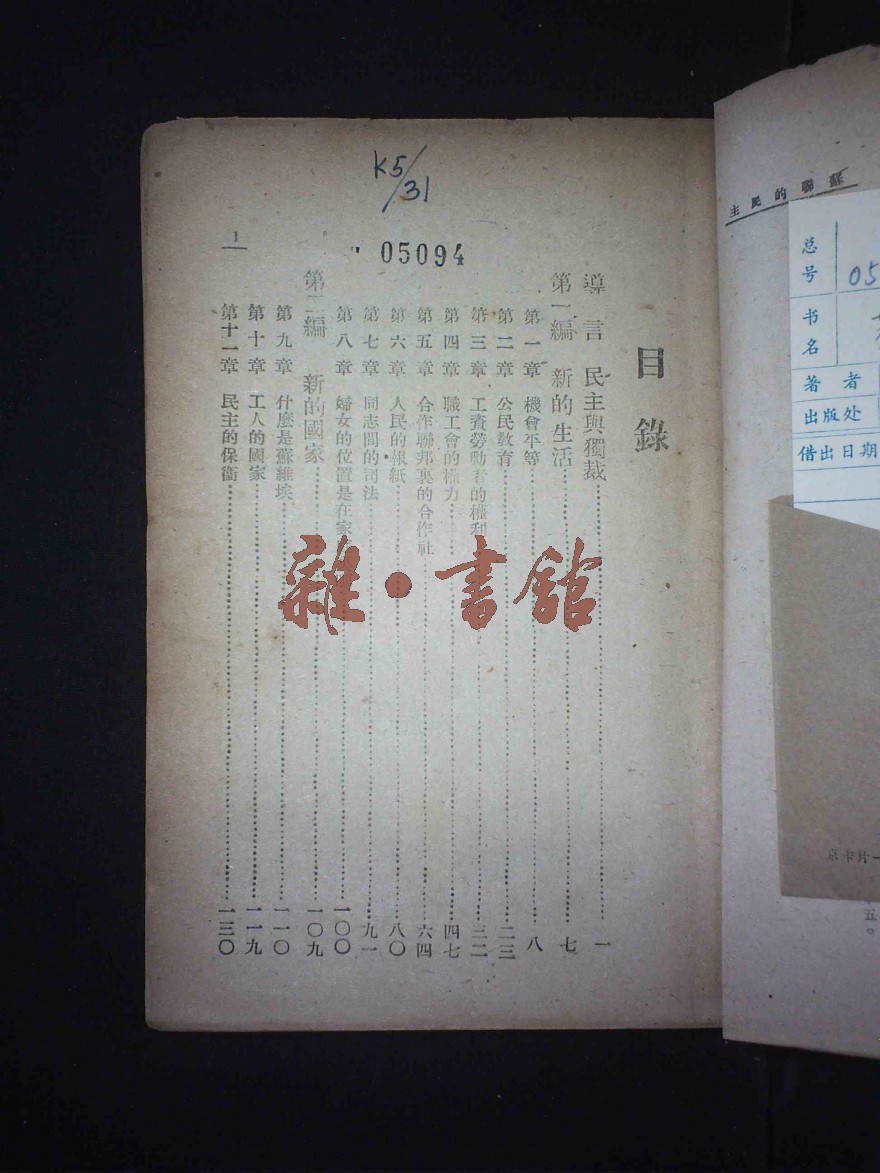 K5/31
05094
目錄
導言 民主與獨裁……一
第一編 新的生活……七
第一章 機會平等……八
第二章 公民教育……二三
第三章 工資勞動者的權利……三二
第四章 職工會的權力……四七
第五章 合作聯邦裏的合作社……六四
第六章 人民的報紙……八〇
第七章 同志間的司法……九一
第八章 婦女的位置是在家……一〇〇
第二編 新的國家……一〇九
第九章 什麼是蘇維埃……一一〇
第十章 工人的國家……一一九
第十一章 民主的保衞……一三〇
1
雜·書館
蘇聯的民主
总号 05
书名
著者
出版处
借出日期
京卡片一
五。